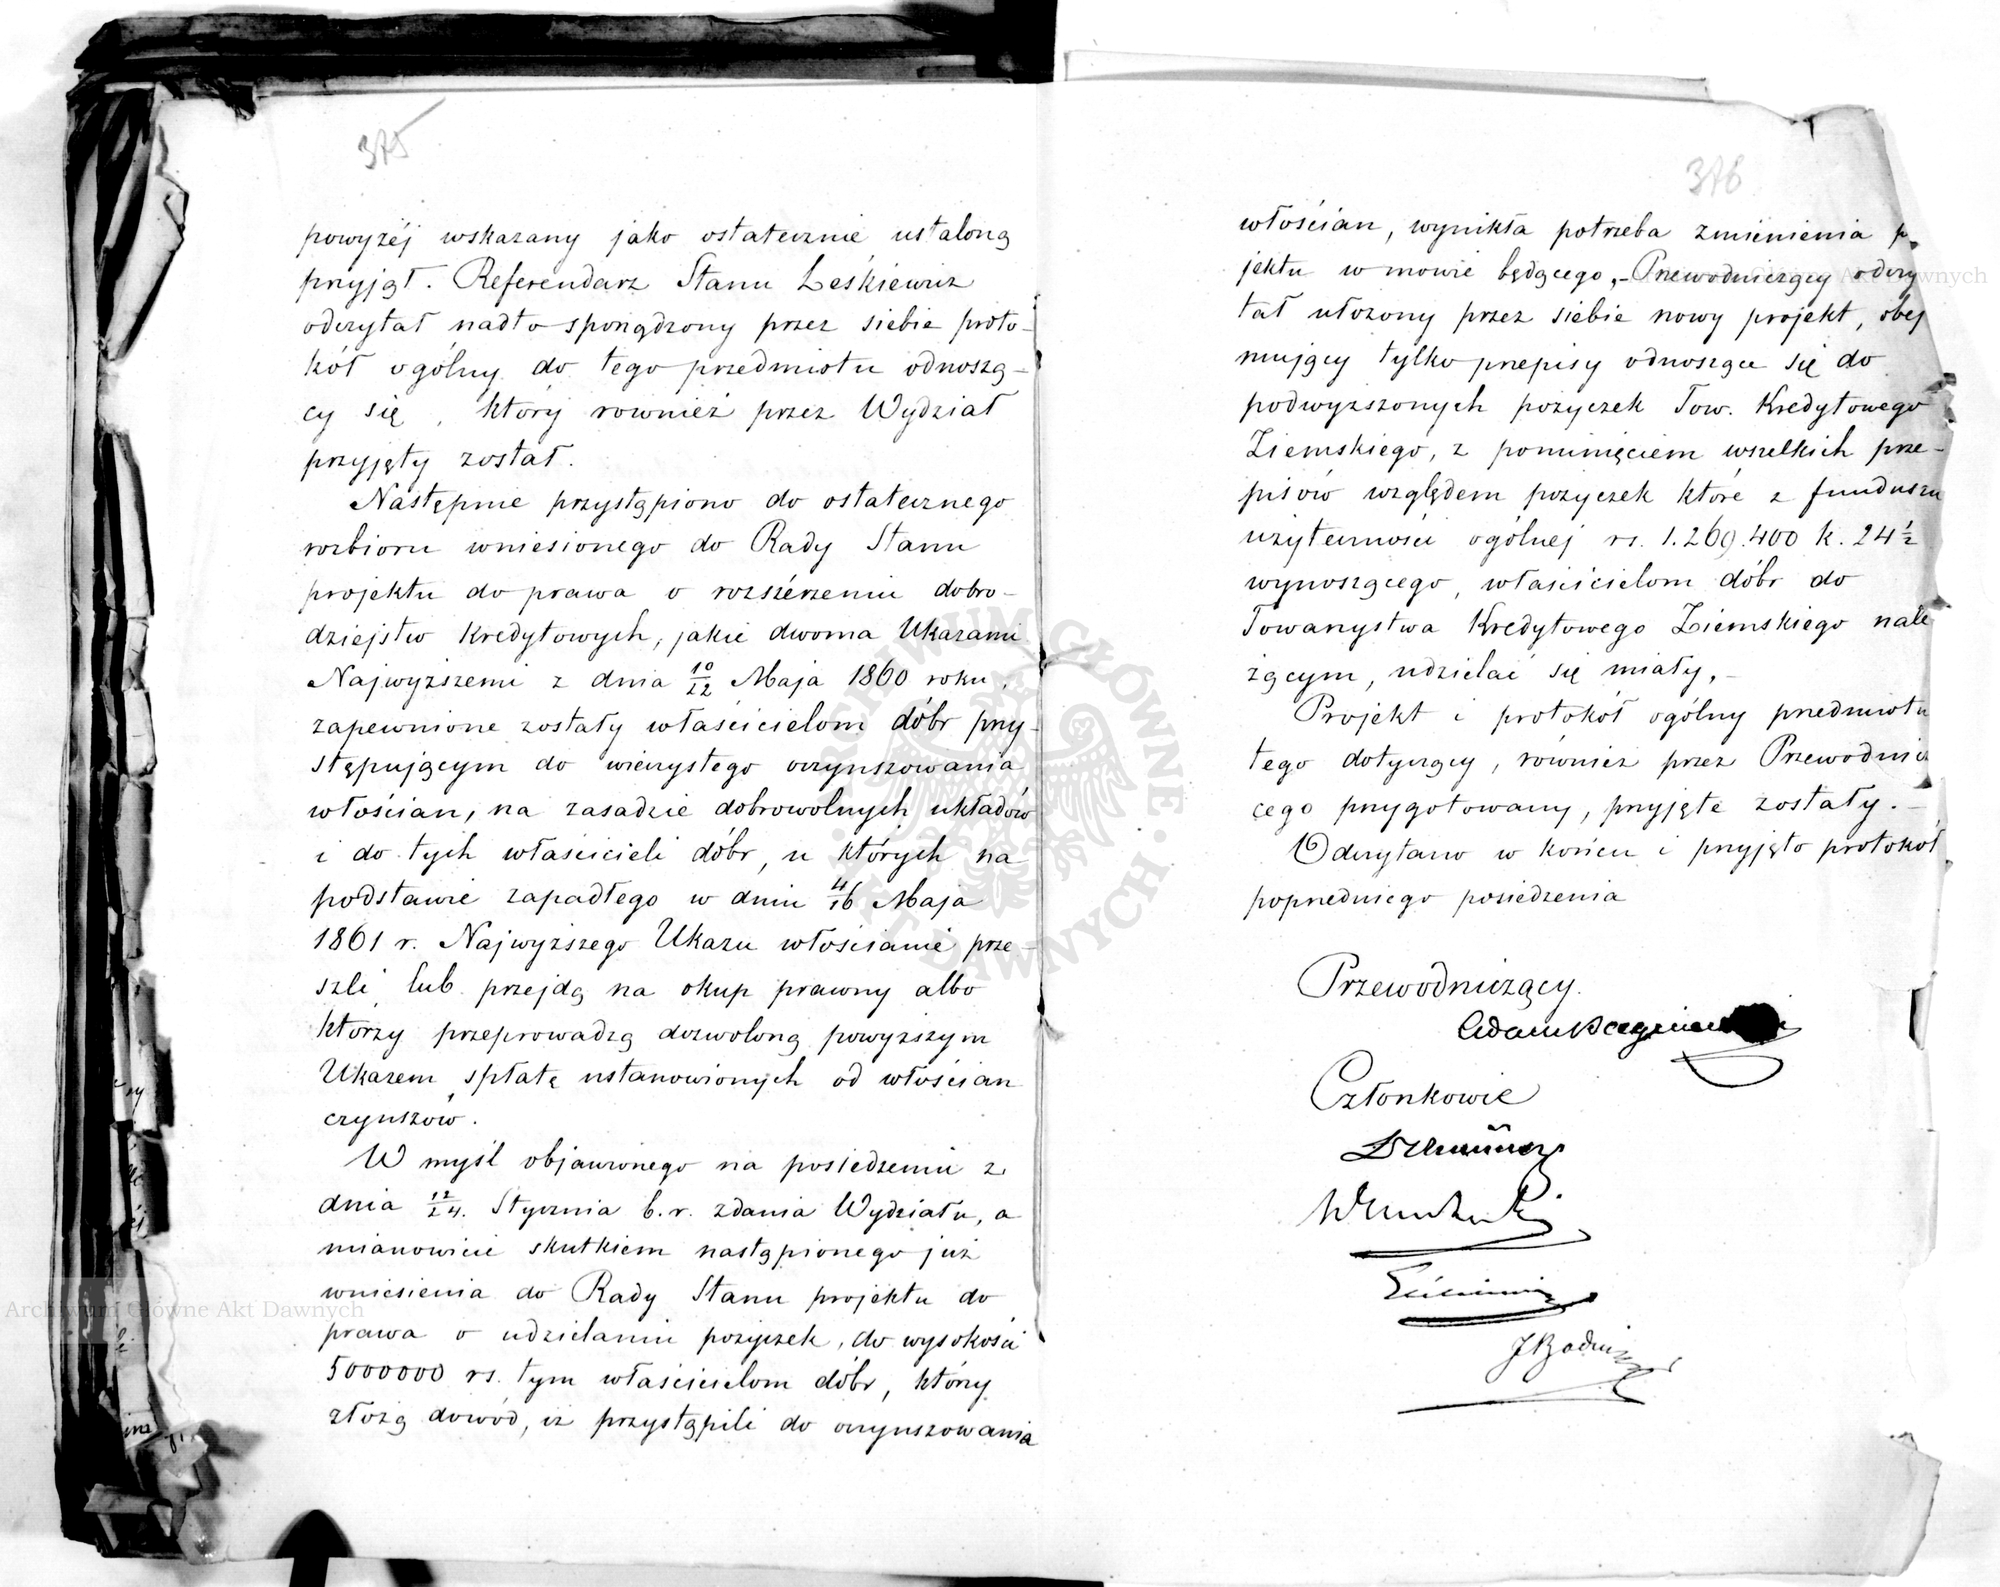 375
powyżéj wskazany jako ostatecznie ustaloną
przyjął. Referendarz Stanu Leśkiewicz
odczytał nadto sporządzony przez siebie proto-
kół ogólny do tego przedmiotu odnoszą-
cy się, który rownież przez Wydział
przyjęty został.
Następnie przystąpiono do ostatecznego
rozbioru wniesionego do Rady Stanu
projektu do prawa o rozszérzeniu dobro-
dziejstw Kredytowych, jakie dwoma Ukazami
Najwyższemi z dnia 10/22 Maja 1860 roku,
zapewnione zostały właścicielom dóbr przy-
stępującym do wieczystego oczynszowania
włościan, na zasadzie dobrowolnych układów
i do tych właścicieli dóbr, u których na
podstawie zapadłego w dniu 4/16 Maja
1861 r. Najwyższego Ukazu włościanie prze-
szli lub przejdą na okup prawny albo
którzy przeprowadzą dozwoloną powyższym
Ukazem spłatę ustanowionych od włościan
czynszów.
W myśl objawionego na posiedzeniu z
dnia 12/24. Stycznia b.r. zdania Wydziału, a
mianowicie skutkiem nastąpionego już
wniesienia do Rady Stanu projektu do
prawa o udzielaniu pożyczek, do wysokości
5000000 rs. tym właścicielom dóbr, którzy
złożą dowód, iż przystąpili do oczynszowania
376
włościan, wynikła potrzeba zmienienia p
jektu w mowie będącego,- Przewodniczący odczy
tał ułożony przez siebie nowy projekt, obej
mujący tylko przepisy odnoszące się do
podwyższonych pożyczek Tow. Kredytowego
Ziemskiego, z pominięciem wszelkich prze-
pisów względem pożyczek które z funduszu
użyteczności ogólnej rs. 1.269.400 k. 24 1/2
wynoszącego, właścicielom dóbr do
Towarzystwa Kredytowego Ziemskiego nale
żącym, udzielać się miały.-
Projekt i protokół ogólny przedmiotu
tego dotyczący, również przez Przewodnic
cego przygotowany, przyjęte zostały.-
Odczytano w końcu i przyjęto protokół
poprzedniego posiedzenia
Przewodniczący.
Adam
Członkowie
Archiwum Główne Akt Dawnych
ARCHIWUM GŁÓWNE
AKT DAWNYCH